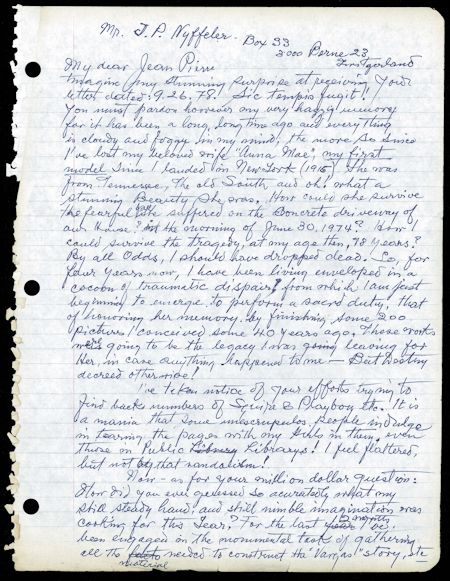 Mr. J. P. Nyffeler.
Box 33
3000 Berne 23,
Switzerland
My dear Jean Pierre
Imagine my stunning surprise at receiving your
letter dated: 9.26.78! Sic tempis fugit!
You must pardon however my very hazy memory
for it has been a long, long time ago and everything
is cloudy and foggy in my mind, the more so since
I've lost my beloved wife "Anna Mae", my first
model since I landed in New York (1916) She was
from Tennessee, the old South, and oh, what a
stunning Beauty she was. How could she survive
the fearful fall she suffered on the concrete driveway of
our House? the morning of June 30, 1974? How I
could survive the tragedy, at my age then, 78 years?
By all odds, I should have dropped dead. So, for
four years now, I have been living enveloped in a
cocoon of traumatic dispair, from which I am just
beginning to emerge to perform a sacred duty, that
of honoring her memory, by finishing some 200
pictures I conceived some 40 years ago. These works
were going to be the legacy I was going leaving for
Her, in case anything happened to me — But Destiny
decreed otherwise!
I've taken notice of your efforts trying to
find back numbers of Squire & Playboy etc. It is
a mania that some unscrupulos people indulge
in tearing the pages with my Girls in them, even
those on Public Library Librarys! I feel flattered,
but not by that vandalism!
Now — as for your million dollar question:
How did you ever guessed so acurately what my
still steady hand and still nimble imagination was
cooking for this year? For the last 12 months
years I've
been engaged in the monumental task of gathering
all the needed to construct the "Vargas" story, etc
material